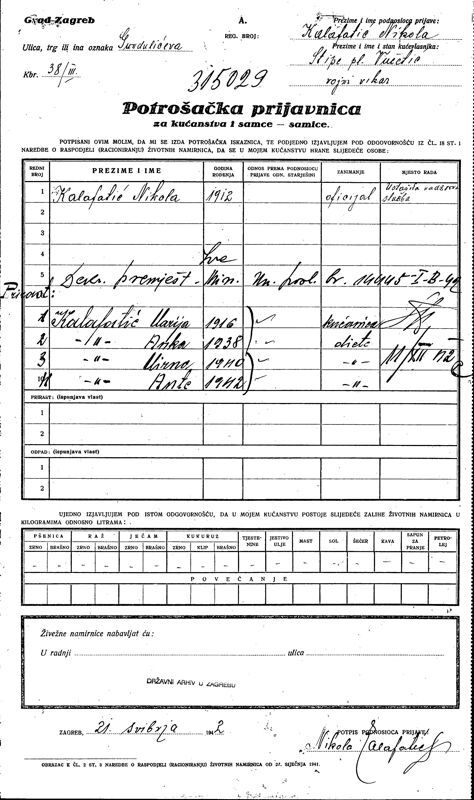 Grad Zagreb
A.
Prezime i ime podnosioca prijave:
Ulica, trg ili ina oznaka
REG. BROJ:
Kalafatić Nikola
Prezime i ime i stan kućevlasnika:
Kbr. 38/III.
315029
Stipe pl. Vučetić
vojni vikar
Potrošačka prijavnica
za kućanstva i samce — samice.
POTPISANI OVIM MOLIM, DA MI SE IZDA POTROŠAČKA ISKAZNICA, TE PODJEDNO IZJAVLJUJEM POD ODGOVORNOŠĆU IZ ČL. 18 ST. 1
NAREDBE O RASPODJELI (RACIONIRANJU) ŽIVOTNIH NAMIRNICA, DA SE U MOJEM KUĆANSTVU HRANE SLIJEDEĆE OSOBE:
REDNI BROJ PREZIME I IME GODINA ROĐENJA ODNOS PREMA PODNOSIOCU PRIJAVE ODN. STARJEŠINI ZANIMANJE MJESTO RADA
1 Kalafatić Nikola 1912 oficijal
2
3
4
5 premješt. Min. br. 14445-I-B-
1 Kalafatić Marija 1916 kućanica
2 -"- Anka 1938 dijete
3 -"- Mirna 1940 -"-
4 -"- Ante 1942 -"-
PRIRAST: (ispunjava vlast)
1
2
OTPAD: (ispunjava vlast)
1
2
UJEDNO IZJAVLJUJEM POD ISTOM ODGOVORNOŠĆU, DA U MOJEM KUĆANSTVU POSTOJE SLIJEDEĆE ZALIHE ŽIVOTNIH NAMIRNICA U
KILOGRAMIMA ODNOSNO LITRAMA:
PŠENICA RAŽ JEČAM KUKURUZ TJESTENINE JESTIVO ULJE MAST SOL ŠEĆER KAVA SAPUN ZA PRANJE PETROLEJ
ZRNO BRAŠNO ZRNO BRAŠNO ZRNO BRAŠNO ZRNO KLIP BRAŠNO
POVEĆANJE
Živežne namirnice nabavljat ću:
U radnji ulica
DRŽAVNI ARHIV U ZAGREBU
ZAGREB, 21. svibnja 1942
POTPIS PODNOSIOCA PRIJAVE:
Nikola Kalafatić
OBRAZAC K ČL. 2 ST. 3 NAREDBE O RASPODJELI (RACIONIRANJU) ŽIVOTNIH NAMIRNICA OD 27. SIJEČNJA 1941.